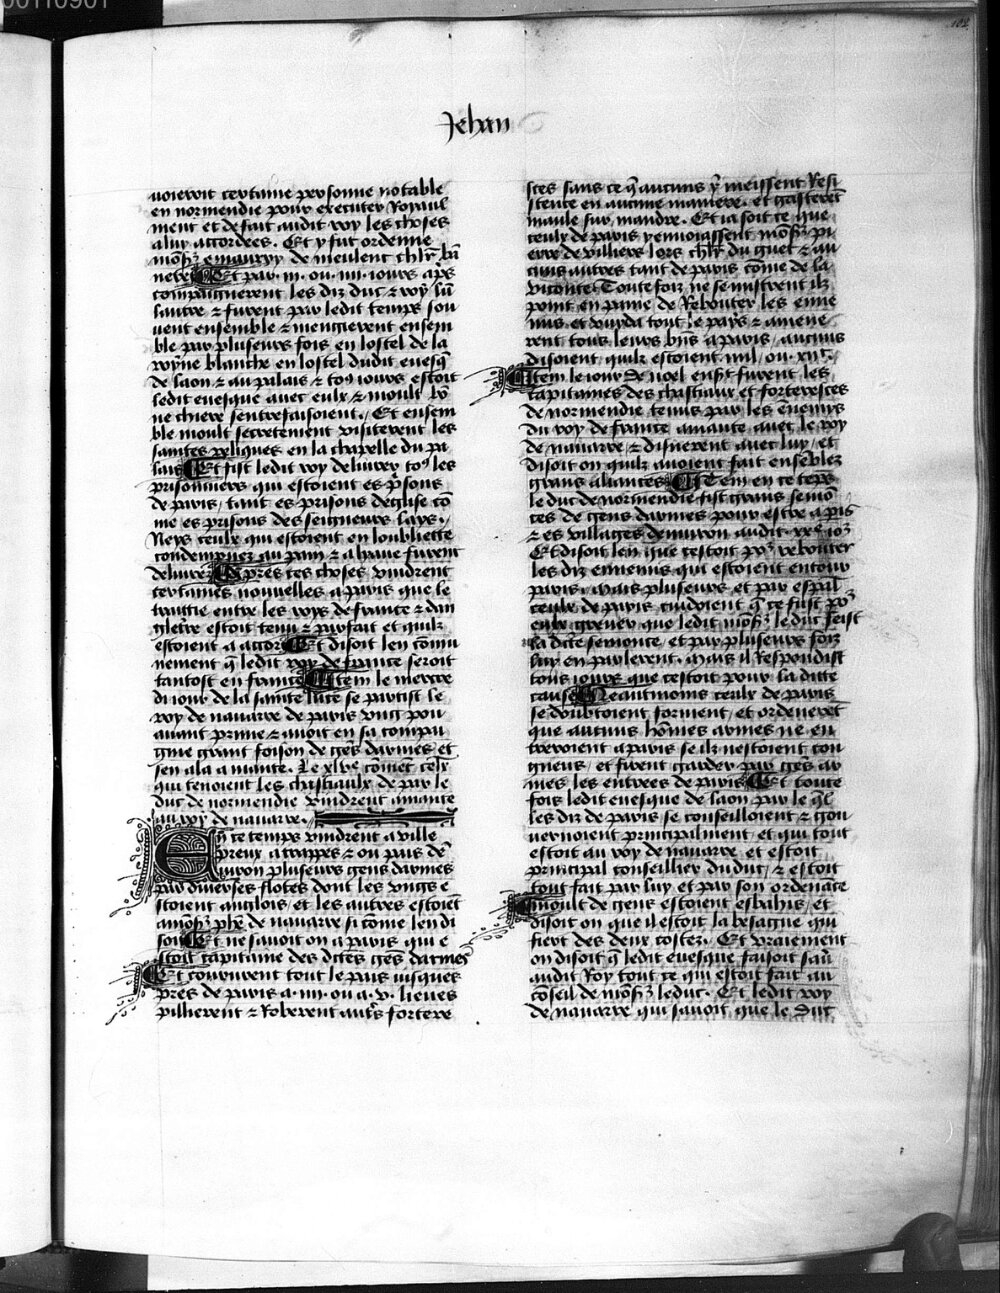 00110901
102
Jehan
uoieroit certaine personne notable
en normendie pour executer Royaul
ment et de fait audit roy les choses
a luy accordees. Et y fut ordenne
mōsr emaurry de meulent chlr bā
neret Et par .iii. ou .iiii. iours aps
compaignerent les diz duc et roy lū
lautre et furent par ledit temps sou
uent ensemble et mengierent ensem
ble par plusieurs fois en lostel de la
royne blanche en lostel dudit euesq̄
de laon et au palais et to9 iours estoit
ledit euesque auec eulx et moult bō
ne chiere sentrefaisoient. Et ensem
ble moult secretement visiterent les
saintes reliques en la chapelle du pa
lais Et fist ledit roy deliurer to9 les
prisonniers qui estoient es psons
de paris tant es prisons deglise cō
me es prisons des seigneurs lays.
Neys ceulx qui estoient en loubliette
condempnez au pain et a leaue furent
deliurez Apres ces choses vindrent
certaines nouuelles a paris que le
traittie entre les roys de france et dan
gleterre estoit tenu et parfait et quilz
estoient a accort Et disoit len cōmu
nement q̄ ledit roy de france seroit
tantost en france Item le mercre
di iour de la sainte luce se partist le
roy de nauarre de paris vng pou
auant prime et auoit en sa compai
gnie grant foison de gēs darmes et
sen ala a mante. Le
qui tenoient les chastiaulx de par le
duc de normendie vindrent a mante
au roy de nauarre.
En ce temps vindrent a ville
preux a trappes et ou pais dē
uiron plusieurs gens darmes
par diuerses flotes dont les vngs e
stoient anglois et les autres estoiēt
a mōsr phē de nauarre si come len di
soit Et ne sauoit on a paris qui e
stoit capitaine des dites gēs darmes
Et coururent tout le pais iusques
pres de paris a .iiii. ou a .v. lieues
pillierent et Roberent autres fortere
sces sans ce q̄ aucuns y meissent Resi
stence en aucune maniere. et gasterēt
maule sur mandre. Et ia soit ce que
ceulx de paris y enuoiassent mōsr pi
erre de villiers lors chlr du guet et au
cuns autres tant de paris cōme de la
viconte Toutefoiz ne se mistrent ilz
point en paine de Rebouter les enne
mis et vuyda tout le pays et amene
rent tous leurs biēs a paris aucuns
disoient quilz estoient mil ou xiic.
Item le iour de noel ensr̄ furent les
capitaines des chastiaux et forteresces
de normendie tenus par les ēnemys
du roy de france a mante auec le roy
de nauarre et disnerent auec luy et
disoit on quilz auoient fait ensemble
grans aliances Item en ce tēps
le duc de normendie fist grans semō
ces de gens darmes pour estre a pis
et es villages denuiron audit
Et disoit len que cestoit po9 rebouter
les diz ennemis qui estoient entour
paris. Mais plusieurs et par espāl
ceulx de paris cuidoient q̄ ce fust po9
eulx greuer que ledit mōsr le duc feist
la dicte semonce et par plusieurs foiz
luy en parlerent. mais il Respondist
tous iours que cestoit pour la dicte
cause Neantmoins ceulx de paris
se doubtoient forment et ordenerēt
que aucuns hōmes armes ne en
treroient a paris se ilz nestoient con
gneus et furent garder par gēs ar
mes les entrees de paris Et toute
fois ledit euesque de laon par le q̄l
les diz de paris se conseilloient et gou
uernoient principalment et qui tout
estoit au roy de nauarre et estoit
principal conseillier du duc et estoit
tout fait par luy et par son ordenāce
moult de gens estoient esbahis et
disoit on que il estoit la besague qui
fiert des deux costez. Et vraiement
on disoit q̄ ledit euesque faisoit sau
audit Roy tout ce qui estoit fait au
cōseil de mōsr le duc. Et ledit roy
de nauarre qui sauoit que le duc